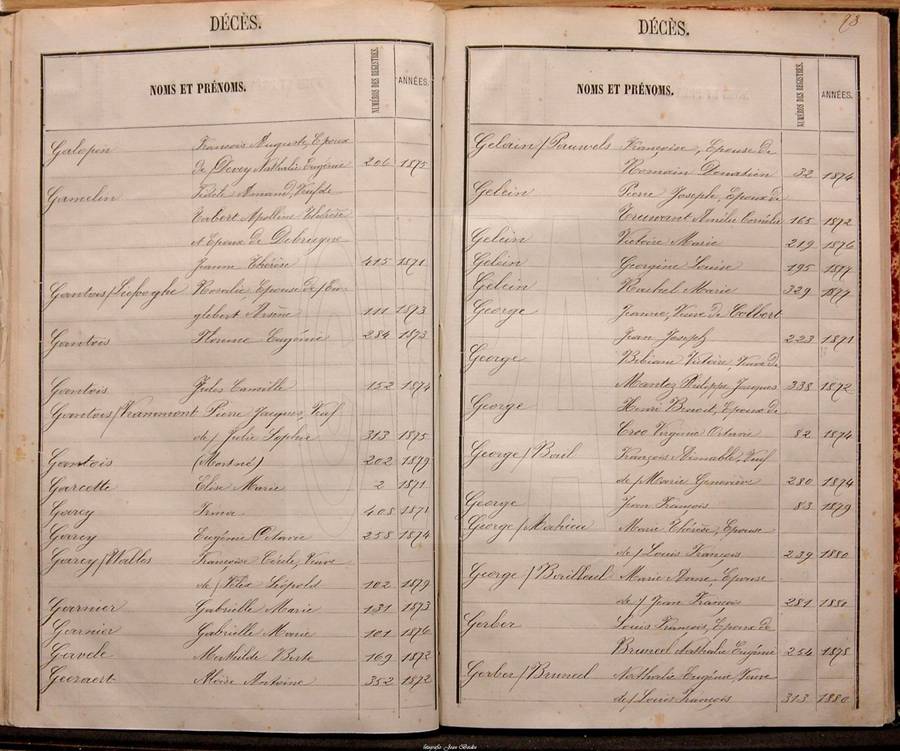 DÉCÈS.
NOMS ET PRÉNOMS. NUMÉROS DES REGISTRES. ANNÉES.
Galopin François Auguste, Epoux
de Devey Nathalie Eugénie 206 1875
Gamelin Fidèle Amand, Veuf de
Cabert Apolline Thérèse
et Epoux de
Jeanne Thérèse 415 1871
Gantois / Rosalie, Epouse de / En-
glebert Arsène 111 1873
Gantois Florine Eugénie 284 1873
Gantois Jules Camille 152 1874
Gantois / Pierre Jacques, Veuf
de / Julie Sophie 313 1875
Gantois (Mortné) 202 1879
Garcette Elise Marie 2 1871
Garcy Irma 408 1871
Garcy Eugénie Octavie 258 1874
Garcy / Françoise Cécile, Veuve
de / Félix Léopold 102 1879
Garnier Gabrielle Marie 131 1873
Garnier Gabrielle Marie 101 1876
Gavele Mathilde Berte 169 1872
Geeraert Aloïse Antoine 352 1872
DÉCÈS.
93
NOMS ET PRÉNOMS. NUMÉROS DES REGISTRES. ANNÉES.
Gelein / Pauwels Françoise, Epouse de
Romain Donatien 32 1874
Gelein Pierre Joseph, Epoux de
Amélie Cornélie 165 1872
Gelein Victoire Marie 219 1876
Gelein Georgine Louise 195 1877
Gelein Rachel Marie 329 1877
George Jeanne, Veuve de Colbert
Jean Joseph 223 1871
George Bibiane Victoire, Veuve de
Mantez Philippe Jacques 338 1872
George Henri Benoit, Epoux de
Croo Virginie Octavie 82 1874
George / Bail François Aimable, Veuf
de / Marie Geneviève 280 1874
George Jean François 83 1879
George / Mahieu Marie Thérèse, Epouse
de / Louis François 239 1880
George / Marie Anne, Epouse
de / Jean François 281 1880
Gerber Louis François, Epoux de
Bruneel Nathalie Eugénie 254 1875
Gerber / Bruneel Nathalie Eugénie, Veuve
de / Louis François 313 1880